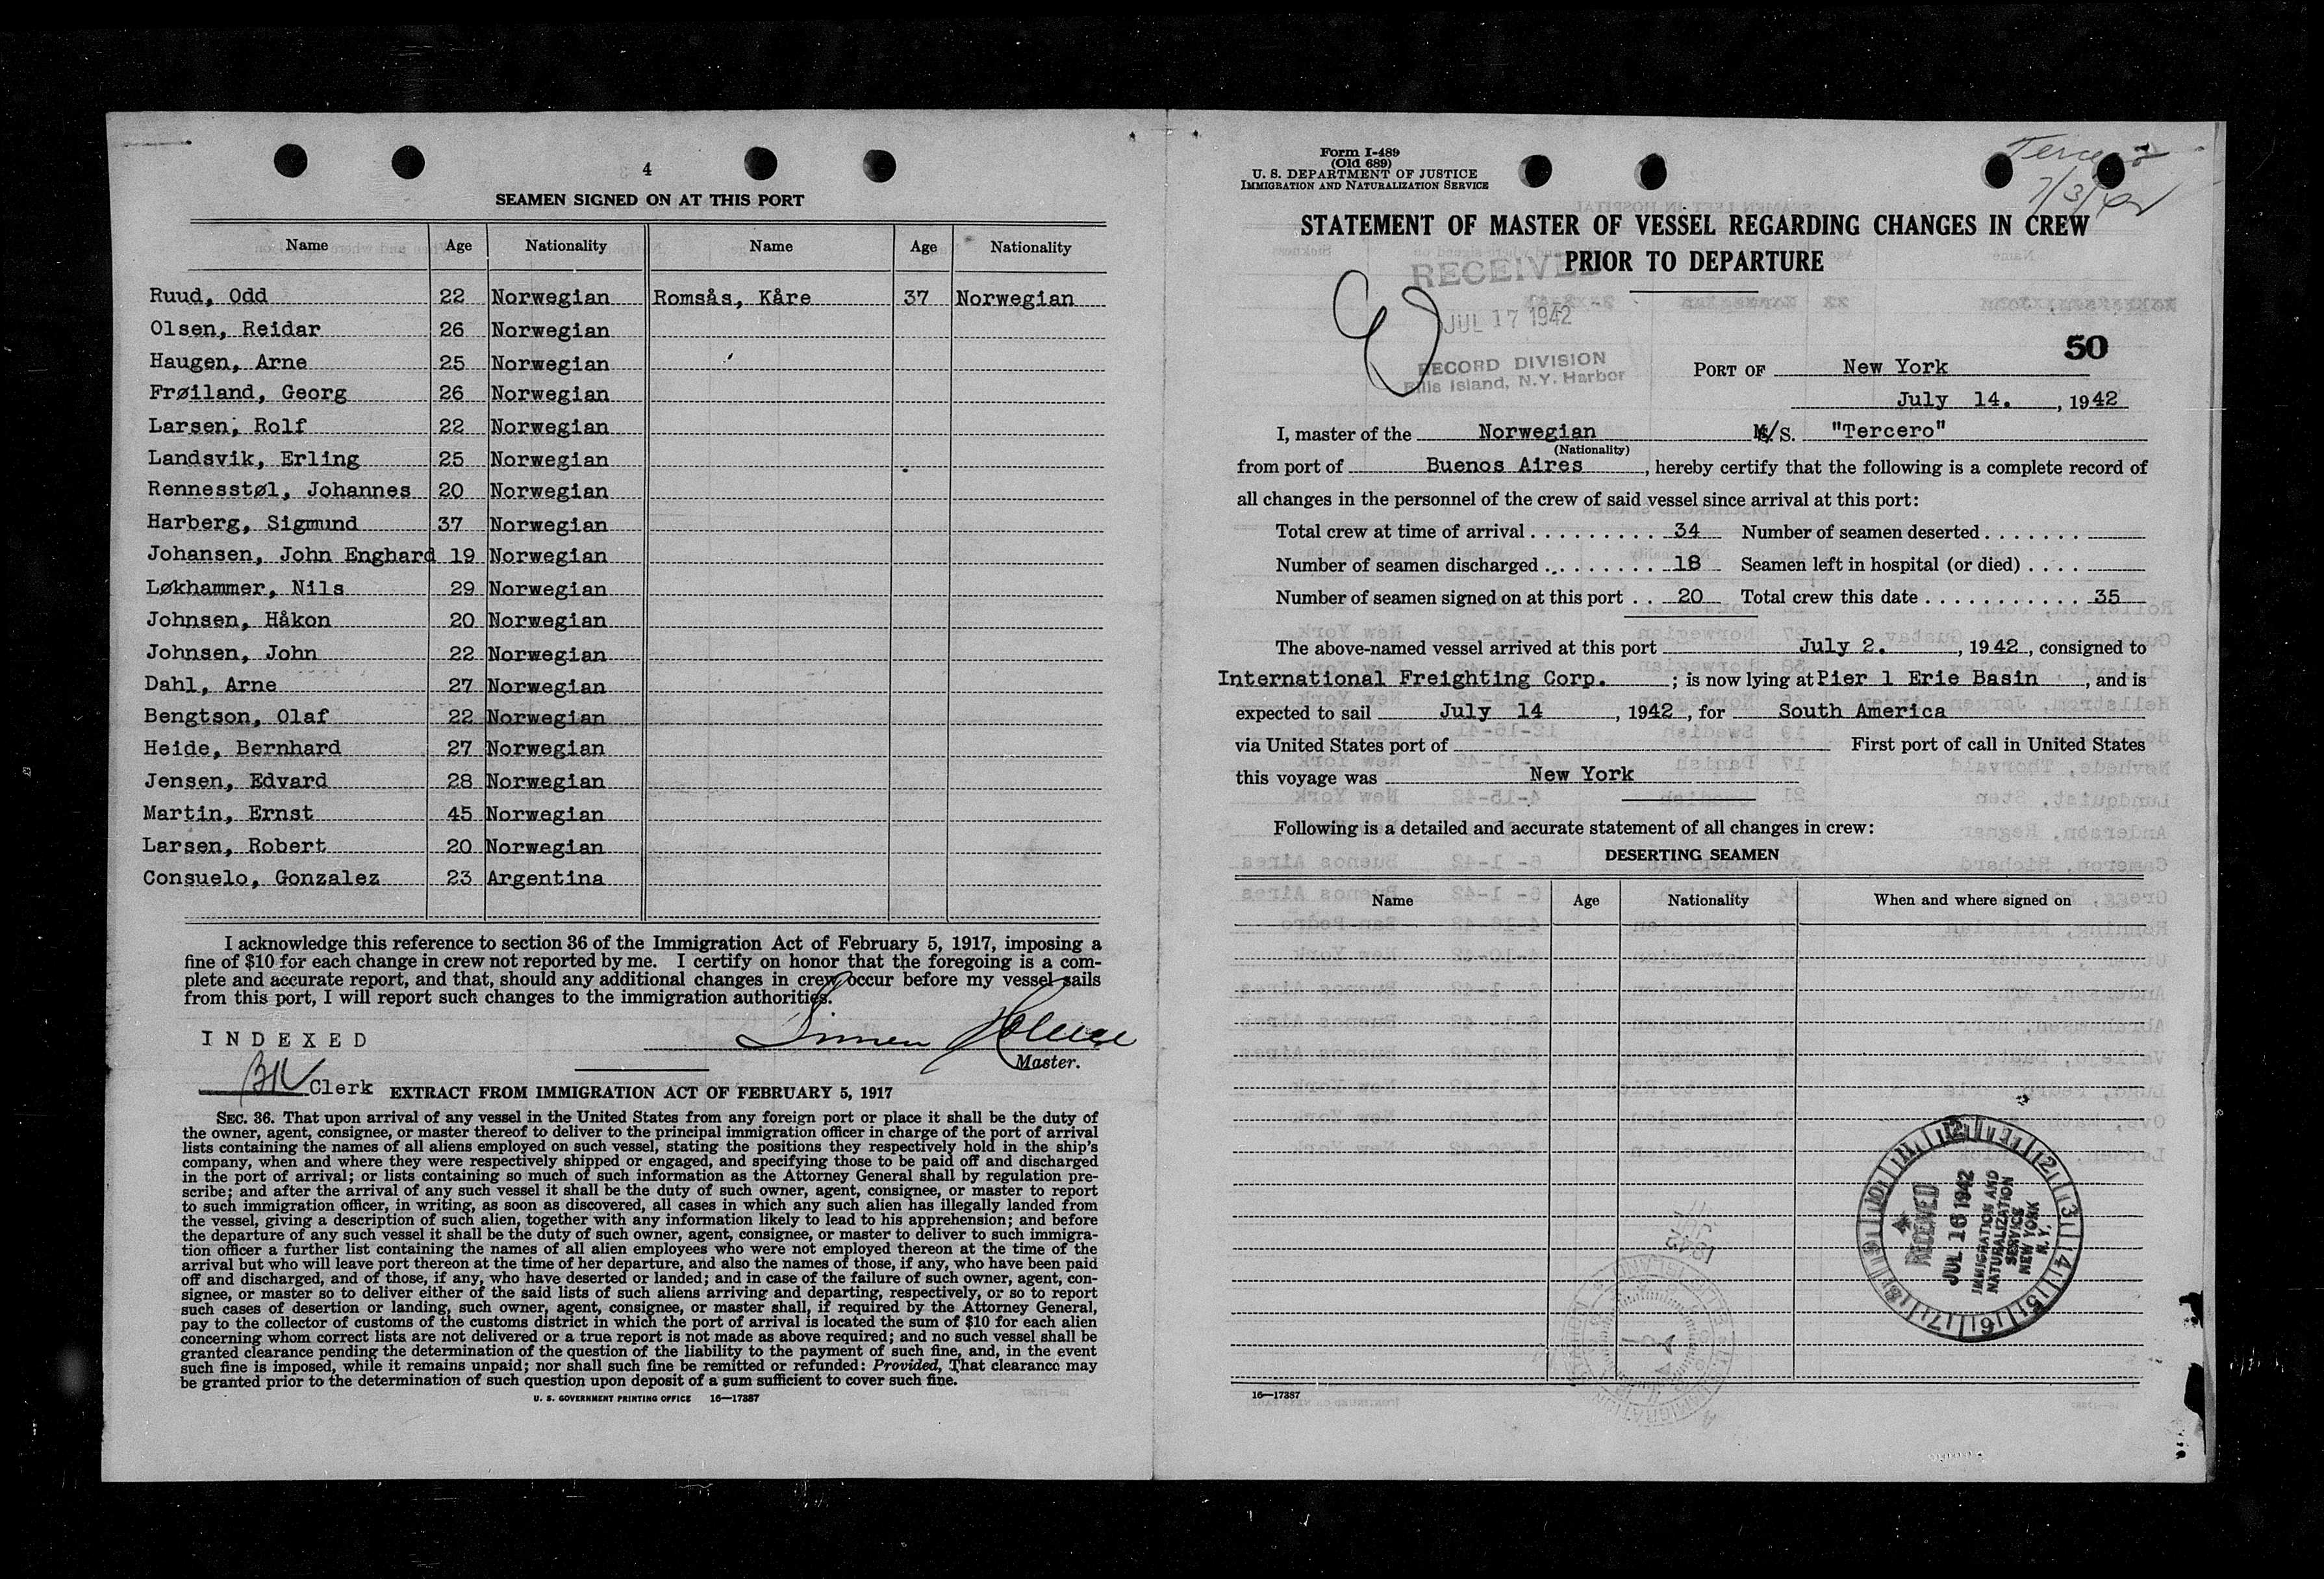 4
SEAMEN SIGNED ON AT THIS PORT
Name Age Nationality Name Age Nationality
Ruud, Odd 22 Norwegian Romsås, Kåre 37 Norwegian
Olsen, Reidar 26 Norwegian
Haugen, Arne 25 Norwegian
Frøiland, Georg 26 Norwegian
Larsen, Rolf 22 Norwegian
Landsvik, Erling 25 Norwegian
Rennesstøl, Johannes 20 Norwegian
Harberg, Sigmund 37 Norwegian
Johansen, John Enghard 19 Norwegian
Løkhammer, Nils 29 Norwegian
Johnsen, Håkon 20 Norwegian
Johnsen, John 22 Norwegian
Dahl, Arne 27 Norwegian
Bengtson, Olaf 22 Norwegian
Heide, Bernhard 27 Norwegian
Jensen, Edvard 28 Norwegian
Martin, Ernst 45 Norwegian
Larsen, Robert 20 Norwegian
Consuelo, Gonzalez 23 Argentina
I acknowledge this reference to section 36 of the Immigration Act of February 5, 1917, imposing a
fine of $10 for each change in crew not reported by me. I certify on honor that the foregoing is a com-
plete and accurate report, and that, should any additional changes in crew occur before my vessel sails
from this port, I will report such changes to the immigration authorities.
INDEXED
Master.
Clerk EXTRACT FROM IMMIGRATION ACT OF FEBRUARY 5, 1917
SEC. 36. That upon arrival of any vessel in the United States from any foreign port or place it shall be the duty of
the owner, agent, consignee, or master thereof to deliver to the principal immigration officer in charge of the port of arrival
lists containing the names of all aliens employed on such vessel, stating the positions they respectively hold in the ship's
company, when and where they were respectively shipped or engaged, and specifying those to be paid off and discharged
in the port of arrival; or lists containing so much of such information as the Attorney General shall by regulation pre-
scribe; and after the arrival of any such vessel it shall be the duty of such owner, agent, consignee, or master to report
to such immigration officer, in writing, as soon as discovered, all cases in which any such alien has illegally landed from
the vessel, giving a description of such alien, together with any information likely to lead to his apprehension; and before
the departure of any such vessel it shall be the duty of such owner, agent, consignee, or master to deliver to such immigra-
tion officer a further list containing the names of all alien employees who were not employed thereon at the time of the
arrival but who will leave port thereon at the time of her departure, and also the names of those, if any, who have been paid
off and discharged, and of those, if any, who have deserted or landed; and in case of the failure of such owner, agent, con-
signee, or master so to deliver either of the said lists of such aliens arriving and departing, respectively, or so to report
such cases of desertion or landing, such owner, agent, consignee, or master shall, if required by the Attorney General,
pay to the collector of customs of the customs district in which the port of arrival is located the sum of $10 for each alien
concerning whom correct lists are not delivered or a true report is not made as above required; and no such vessel shall be
granted clearance pending the determination of the question of the liability to the payment of such fine, and, in the event
such fine is imposed, while it remains unpaid; nor shall such fine be remitted or refunded: Provided, That clearance may
be granted prior to the determination of such question upon deposit of a sum sufficient to cover such fine.
U. S. GOVERNMENT PRINTING OFFICE 16—17387
Form I-489
(Old 689)
U. S. DEPARTMENT OF JUSTICE
IMMIGRATION AND NATURALIZATION SERVICE
Tercero
7/3/42
STATEMENT OF MASTER OF VESSEL REGARDING CHANGES IN CREW
PRIOR TO DEPARTURE
RECEIVED
JUL 17 1942
RECORD DIVISION
Ellis Island, N.Y. Harbor
50
PORT OF New York
July 14. , 1942
I, master of the Norwegian M/S. "Tercero"
(Nationality)
from port of Buenos Aires , hereby certify that the following is a complete record of
all changes in the personnel of the crew of said vessel since arrival at this port:
Total crew at time of arrival 34 Number of seamen deserted
Number of seamen discharged 18 Seamen left in hospital (or died)
Number of seamen signed on at this port 20 Total crew this date 35
The above-named vessel arrived at this port July 2. , 1942 , consigned to
International Freighting Corp. ; is now lying at Pier 1 Erie Basin , and is
expected to sail July 14 , 1942 , for South America
via United States port of First port of call in United States
this voyage was New York
Following is a detailed and accurate statement of all changes in crew:
DESERTING SEAMEN
Name Age Nationality When and where signed on
RECEIVED
JUL 16 1942
IMMIGRATION AND
NATURALIZATION
SERVICE
NEW YORK
N.Y.
16—17387